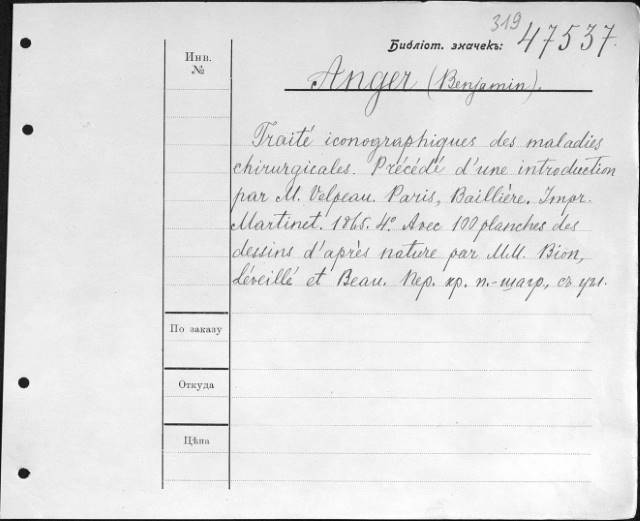 319
Библіот. значекъ: 47537.
Инв.
№
Anger (Benjamin).
Traité iconographiques des maladies
chirurgicales. Précédé d'une introduction
par M. Velpeau. Paris, Baillière. Impr.
Martinet. 1865. 4º Avec 100 planches des
dessins d'après nature par M.M. Bion,
Léveillé et Beau. Пер. кр. п.-шагр., съ угл.
По заказу
Откуда
Цѣна